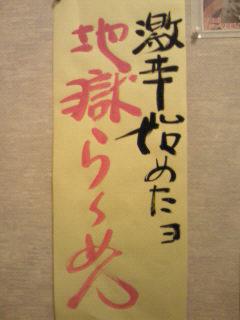 激辛始めたヨ
地獄らぁめん